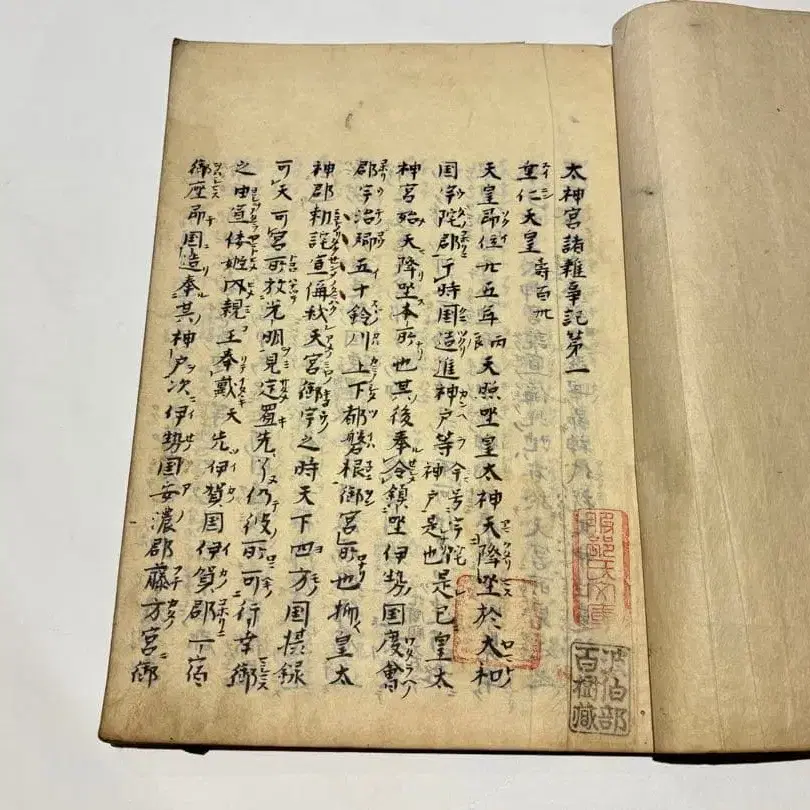 太神宮諸雜事記第一
垂仁天皇 壽百卅
天皇即位廿五年丙辰天照坐皇太神天降坐於大和
国宇陀郡于時国造進神戸等 今号宇陀神戸是也 是已皇太
神宮始天降坐本所也其後奉令鎮坐伊勢国度會
郡宇治郷五十鈴川上下都磐根御宮所也抑皇太
神郡勅詫宣偁我天宮御宇之時天下四方国摸録
可天可宮所放光明見定置先了仍彼所可行幸御
之由宣倭姫内親王奉戴天先伊賀国伊賀郡一宿
御座即国造奉其神戸次伊勢国安濃郡藤方宮御
波伯部
百樹蔵